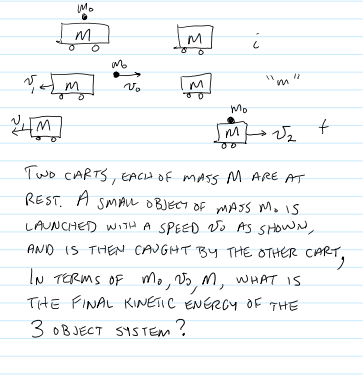 m₀
M M i
m₀
v₁ M v₀ M "m"
m₀
v₁ M M v₂ f
TWO CARTS, EACH OF MASS M ARE AT
REST. A SMALL OBJECT OF MASS M₀ IS
LAUNCHED WITH A SPEED V₀ AS SHOWN,
AND IS THEN CAUGHT BY THE OTHER CART,
IN TERMS OF m₀, v₀, M, WHAT IS
THE FINAL KINETIC ENERGY OF THE
3 OBJECT SYSTEM?